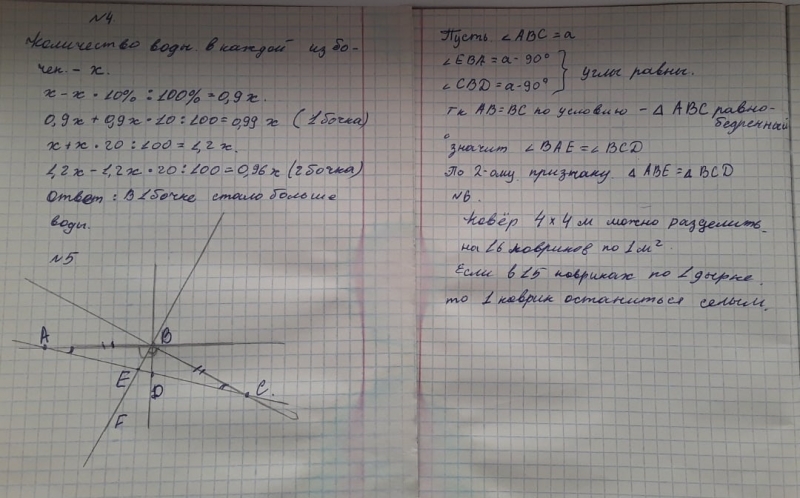 №4
Количество воды в каждой из бо-
чек - x.
x - x · 10% : 100% = 0,9x.
0,9x + 0,9x · 10 : 100 = 0,99x (1бочка)
x + x · 20 : 100 = 1,2x.
1,2x - 1,2x · 20 : 100 = 0,96x (2бочка)
Ответ: В 1бочке стало больше
воды.
№5
A
B
E
D
C.
F
Пусть ∠ABC = a
∠EBA = a - 90°
∠CBD = a - 90° } углы равны.
тк AB = BC по условию - △ ABC равно-
бедренный
значит ∠BAE = ∠BCD
По 2-ому признаку △ ABE = △ BCD
№6.
Ковёр 4 x 4 м можно разделить
на 16 ковриков по 1 м².
Если в 15 ковриках по 1 дырке,
то 1 коврик останиться целым.